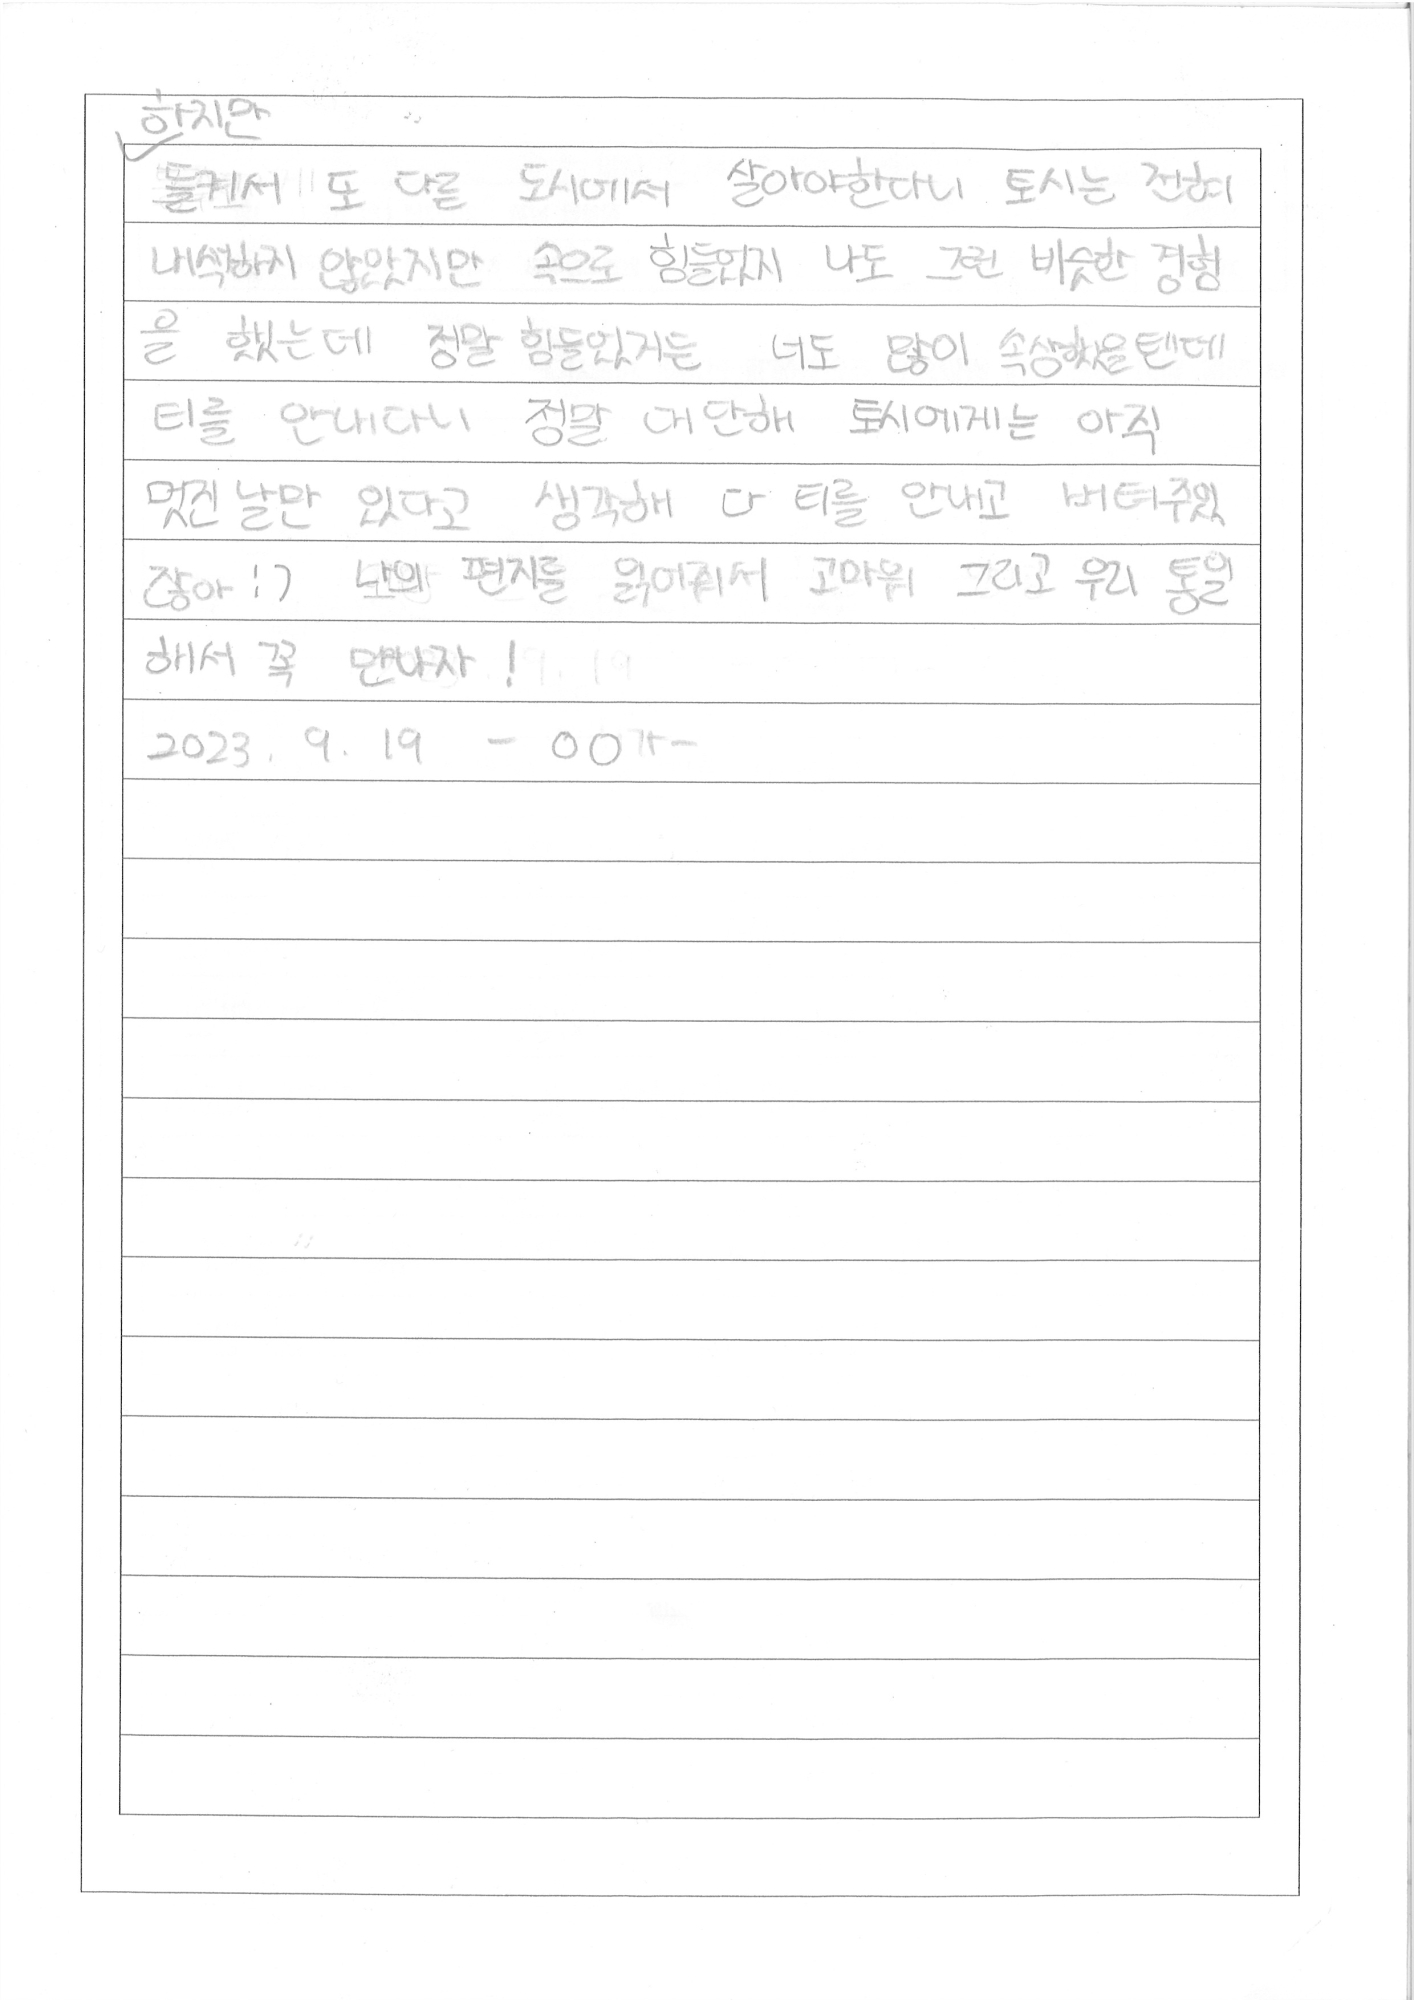 하지만
들께서 또 다른 도시에서 살아야한다니 토시는 전혀
내색하지 않았지만 속으로 힘들었지 나도 그런 비슷한 경험
을 했는데 정말 힘들었거든 너도 많이 속상했을텐데
티를 안내다니 정말 대단해 토시에게는 아직
멋진 날만 있다고 생각해 다 티를 안내고 버텨주었
잖아 :) 나의 편지를 읽어줘서 고마워 그리고 우리 통일
해서 꼭 만나자!
2023. 9. 19 - 00가-